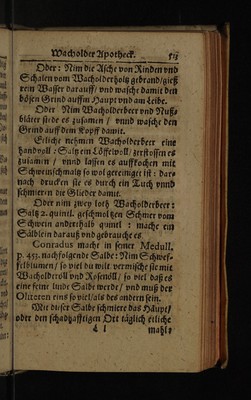 Wacholder Apotheck. 513
Oder: Nim die Asche von Rinden vnd
Schalen vom Wacholderholtz gebrand/gieß
rein Wasser darauff/ vnd wasche damit den
bösen Grind auffm Haupt vnd am Leibe.
Oder Nim Wacholderbeer vnd Nuß-
blåter siede es zusamen / vnnd wasche den
Grind auff dem Kopff damit.
Etliche nehmen Wacholderbeer eine
handvoll: Saltz ein Löffelvoll: zerstossen es
zusamen / vnnd lassen es auffkochen mit
Schweinschmaltz so wol gereiniget ist: dar-
nach drucken sie es durch ein Tuch vnnd
schmieren die Glieder damit.
Oder nim zwey loth Wacholderbeer:
Saltz 2. quintl. geschmoltzen Schmer vom
Schwein anderthalb quintl: mache ein
Sålblein darauß vnd gebrauche es
Conradus macht in seiner Medull.
p. 453. nachfolgende Salbe: Nim Schwef-
felblumen/ so viel du wilt vermische sie mit
Wacholderöll vnd Rosenöll/ so viel daß es
eine feine linde Salbe werde/ vnd muß der
Oliteten eins so viel/als des andern sein.
Mit dieser Salbe schmiere das Häupt/
oder den schadhafftigen Ort täglich etliche
mahl: